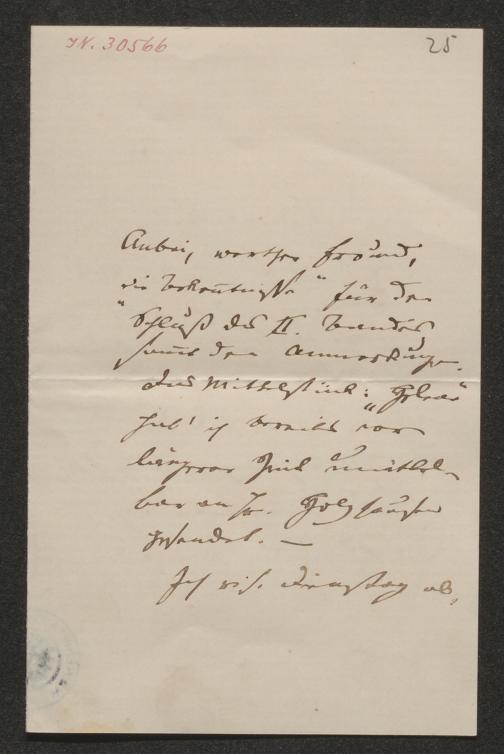 IN. 30566
25
Anbei, werther Freund,
die „Bekenntnisse“ für den
Schluß des II. Bandes
sammt den Anmerkungen.
Das Mittelstück:
hab' ich bereits vor
längerer Zeit unmittel-
bar an Hr. Holzhausen
gesendet. —
Ich reise Dienstag ab,